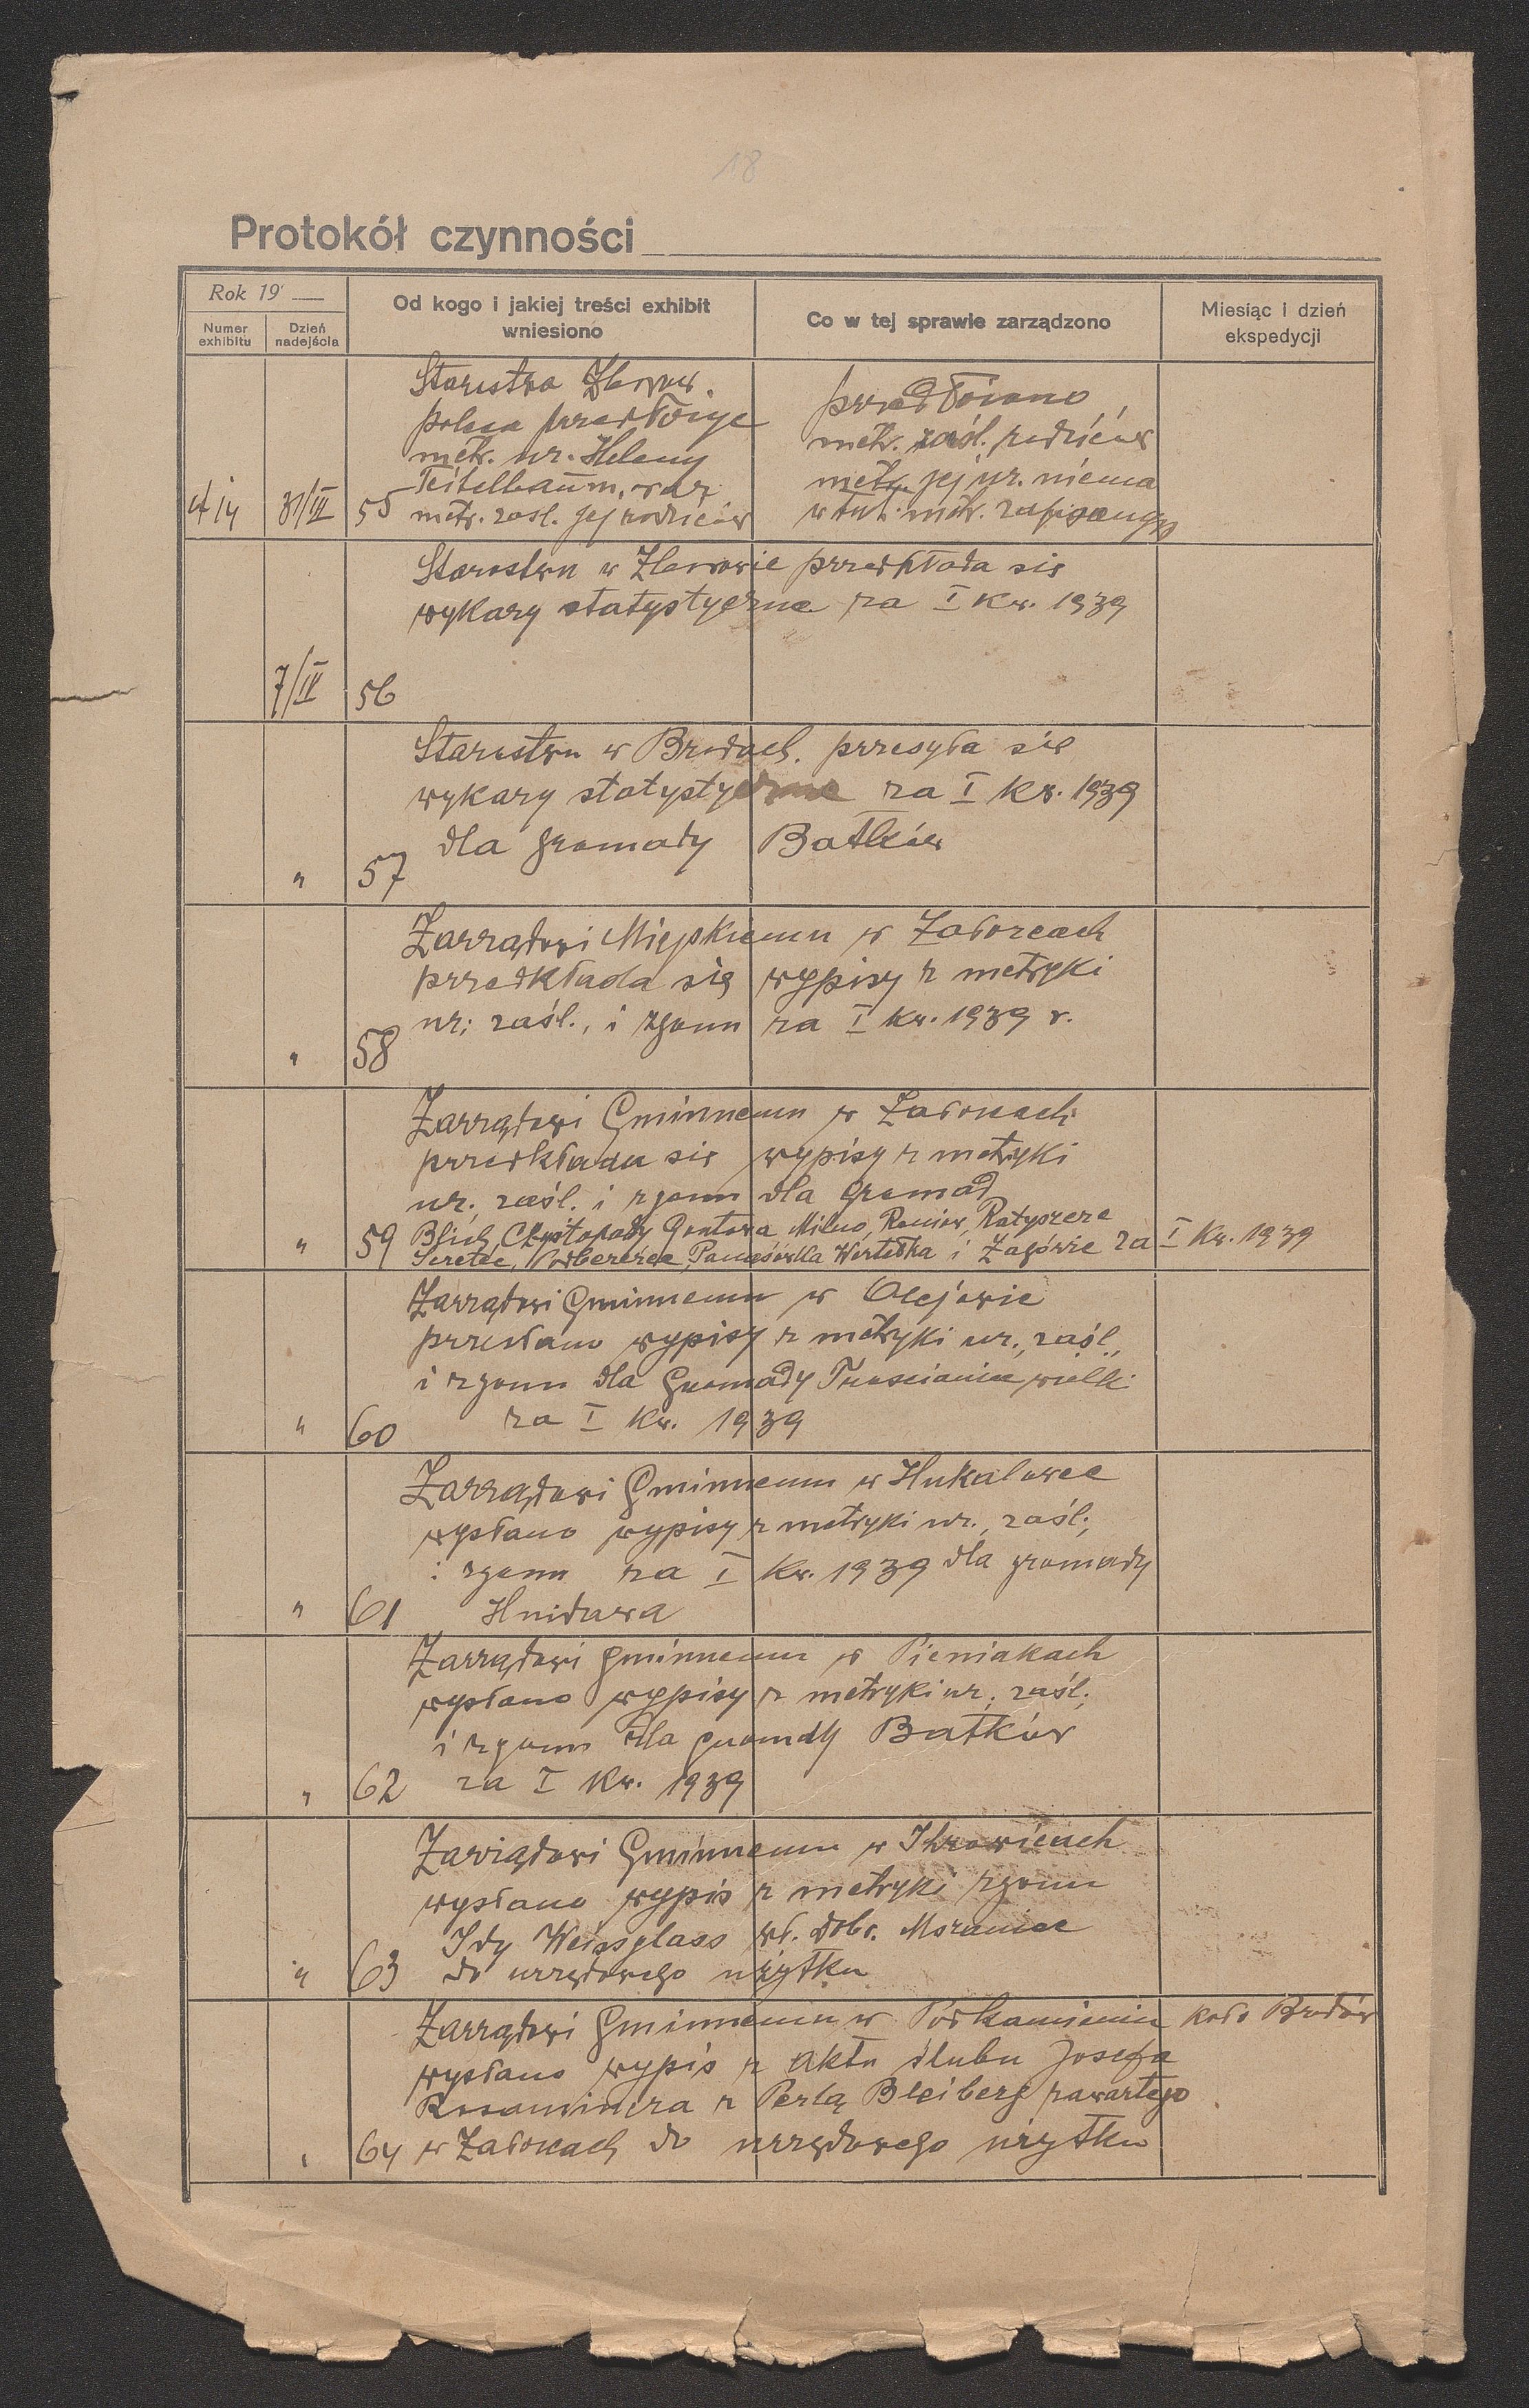 18
Protokół czynności
Rok 19
Numer exhibitu
Dzień nadejścia
Od kogo i jakiej treści exhibit wniesiono
Co w tej sprawie zarządzono
Miesiąc i dzień ekspedycji
Starostwo Zborow.
poleca przedłożyć
metr. ur. Heleny
Teitelbaum, oraz
31/III 55 metr. zaśl. jej rodziców
przedłożono
metr. zaśl. rodziców
metr. jej ur. niema
w tut. metr.
Starostwu w Zborowie przedkłada się
wykazy statystyczne za I kw. 1939
7/IV 56
Starostwu w Brodach. przesyła się
wykazy statystyczne za I kw. 1939
dla gromady Batków
" 57
Zarządowi Miejskiemu w Załoźcach
przedkłada się wypisy z metryki
ur; zaśl., i zgonu za I kw. 1939 r.
" 58
Zarządowi Gminnemu w Załoźcach
przedkłada się wypisy z metryki
ur., zaśl. i zgonu dla gromad
" 59 Blich, Czystopady Gontowa, Milno, Reniow, Ratyszcze
Seretec, Podbereźce, Panasówka Wertełka i Zagórze za I kw. 1939
Zarządowi Gminnemu w Olejowie
przesłano wypisy z metryki ur., zaśl.,
i zgonu dla Gromady Trościaniec wielki
" 60 za I kw. 1939
Zarządowi Gminnemu w Hukalowce
wysłano wypisy z metryki ur., zaśl.;
i zgonu za I kw. 1939 dla gromady
" 61 Hnidawa
Zarządowi gminnemu w Pieniakach
wysłano wypisy z metryki ur; zaśl;
i zgonu dla gromdy Batków
" 62 za I kw. 1939
Zarządowi Gminnemu w
wysłano wypis z metryki zgonu
Idy Weissglass wł. dobr.
" 63 do urzędowego użytku
Zarządowi Gminnemu w Podkamieniu koło Brodów
wysłano wypis z aktu ślubu Josefa
z Perlą Bleiberg zawartego
" 64 w Załoźcach do urzędowego użytku